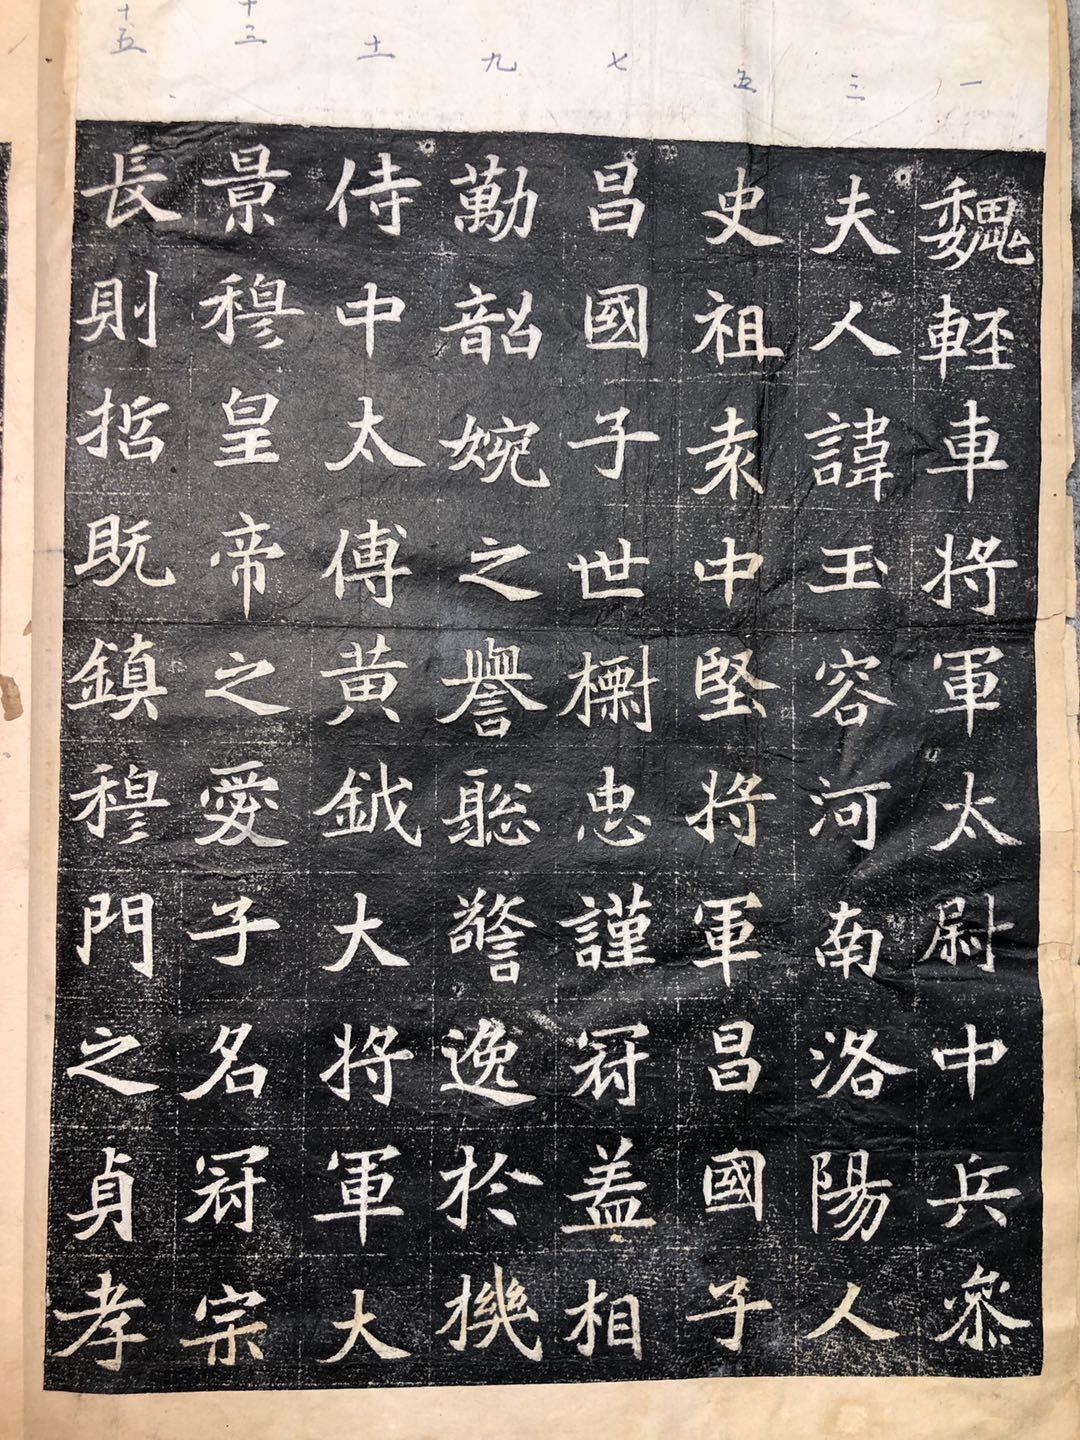 一
三
五
七
九
十一
十三
十五
魏輕車將軍太尉中兵參
夫人諱玉容河南洛陽人
史祖袁中堅將軍昌國子
昌國子世忠謹冠蓋相
勤韶婉之譽聡警逸於機
侍中太傅黃鉞大將軍大
景穆皇帝之愛子名冠宗
長則哲既鎮穆門之貞孝